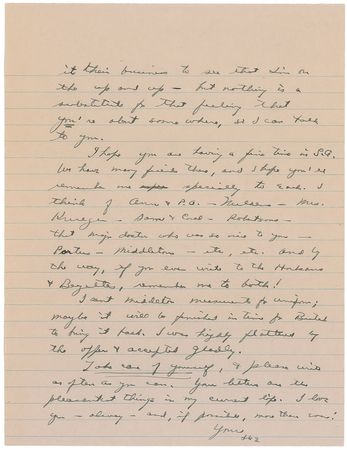 it their business to see that I'm on
the up and up — but nothing is a
substitute for that feeling that
you're about somewhere, so I can talk
to you.
I hope you are having a fine time in S.A.
We have many friends there, and I hope you'll
remember me specially to each. I
think of Ann & P.A. — — Mrs.
Krueger — Sam & — —
that major doctor who was so nice to you —
Porters — Middletons — etc., etc. And by
the way, if you ever write to the
& , remember me to both!
I sent Middleton measurements for uniform;
maybe it will be finished in time for
to bring it back. I was highly flattered by
the offer & accepted gladly.
Take care of yourself, & please write
as often as you can. Your letters are the
pleasantest things in my current life. I love
you — always — and, if possible, more than ever!
Your